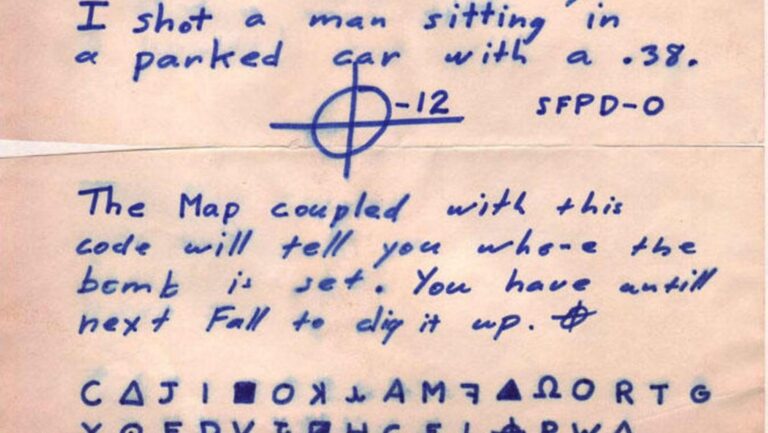 I shot a man sitting in
a parked car with a .38.
-12 SFPD-0
The Map coupled with this
code will tell you whone the
bomb is set. You have antill
next Fall to dig it up.
C Δ J I ■ O ꓘ A M ꟻ ▲ Ω O R T G